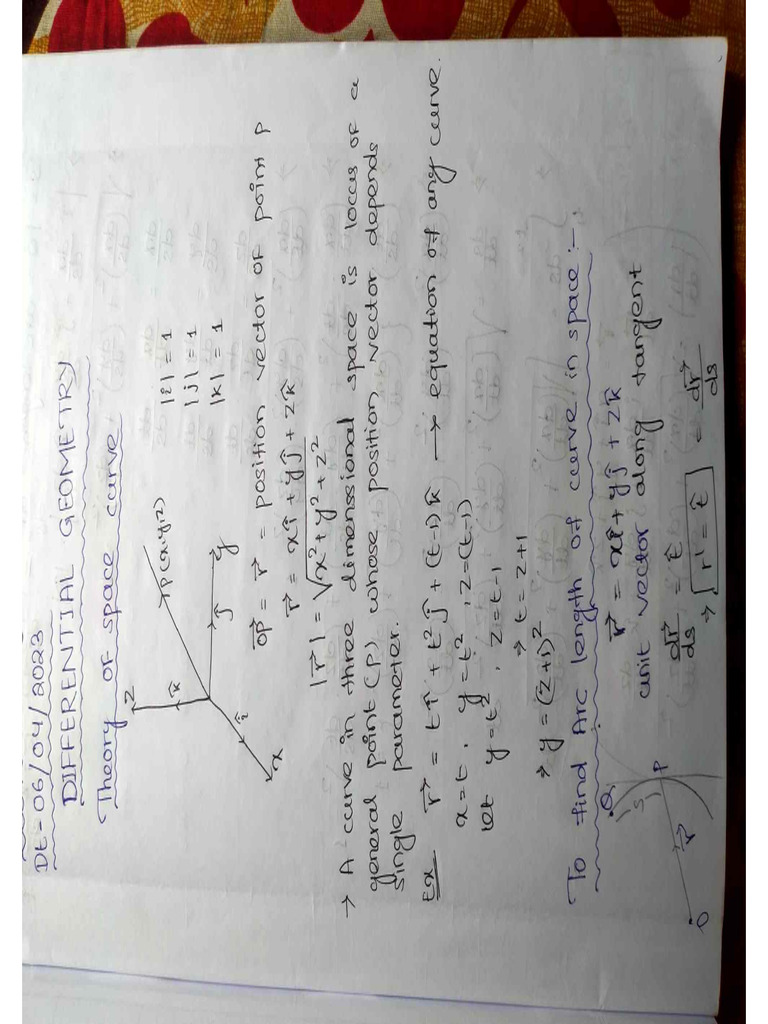 Dt - 06/04/2023
DIFFERENTIAL GEOMETRY
Theory of space curve
z
k̂
P(x,y,z)
ĵ
y
î
x
|î| = 1
|ĵ| = 1
|k̂| = 1
OP⃗ = r⃗ = position vector of point P
r⃗ = xî + yĵ + zk̂
|r⃗| = √x²+y²+z²
→ A curve in three dimenssional space is locus of a
general point (P) whose position vector depends
single parameter.
Ex r⃗ = tî + t²ĵ + (t-1)k̂ → equation of any curve.
x=t, y=t², z=(t-1)
let y=t², z=t-1
⇒ t=z+1
⇒ y=(z+1)²
To find Arc length of curve in space :-
r⃗ = xî + yĵ + zk̂
unit vector along tangent
dr⃗/ds = t̂
⇒ r' = t̂ = dr⃗/ds
Q
S
P
r⃗
O